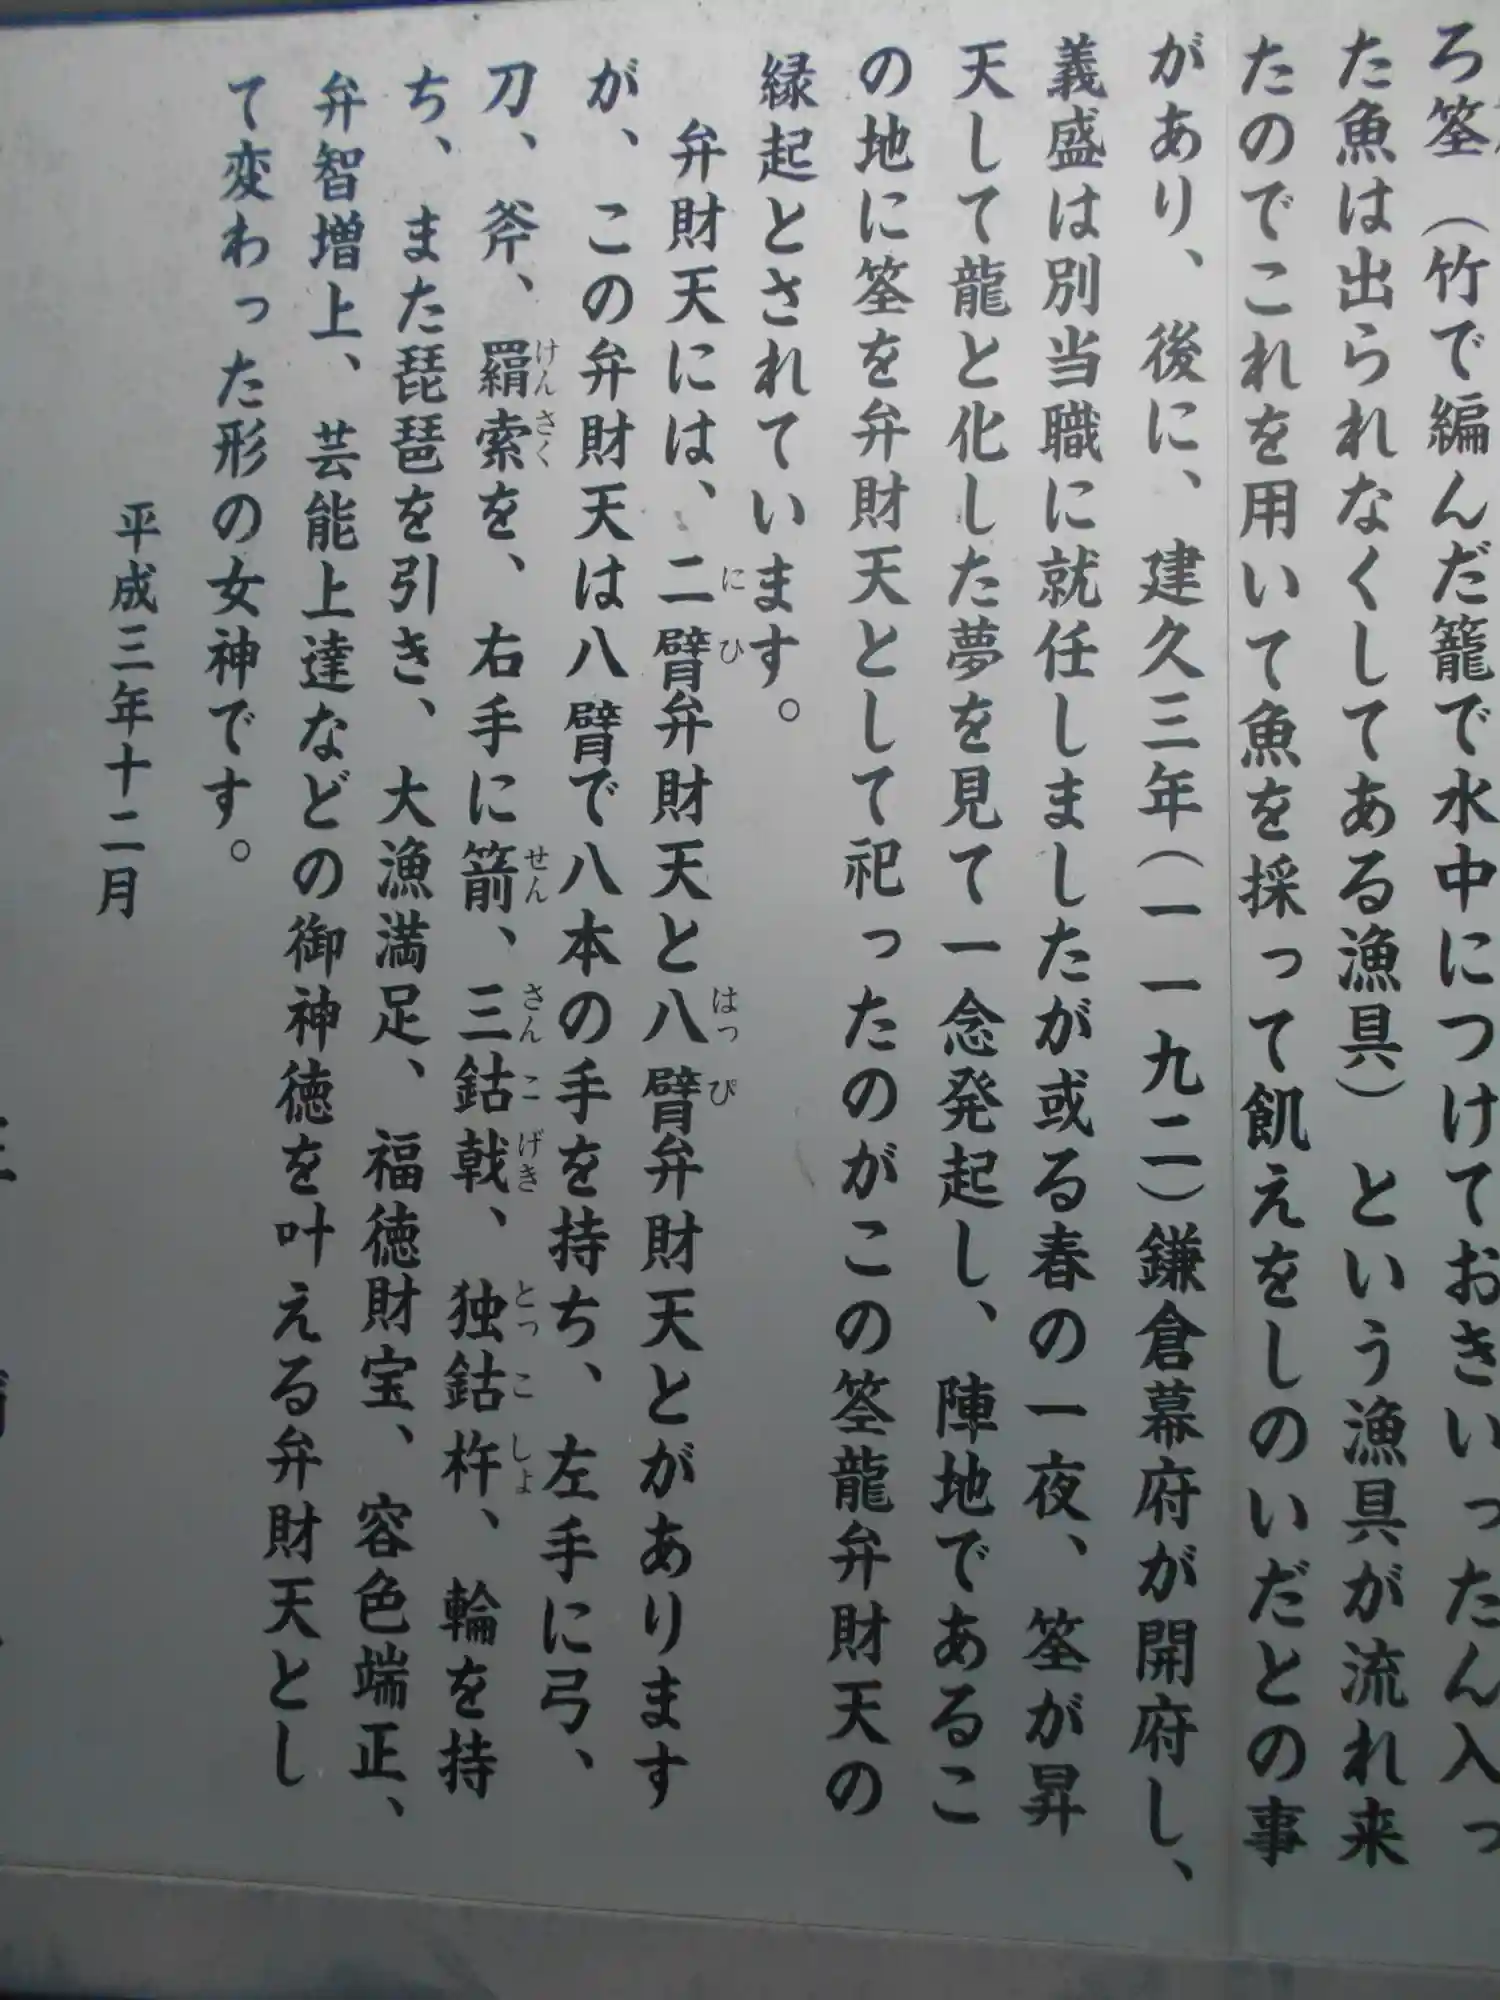 ろ筌（竹で編んだ籠で水中につけておきいったん入っ
た魚は出られなくしてある漁具）という漁具が流れ来
たのでこれを用いて魚を採って飢えをしのいだとの事
があり、後に、建久三年（一一九二）鎌倉幕府が開府し、
義盛は別当職に就任しましたが或る春の一夜、筌が昇
天して龍と化した夢を見て一念発起し、陣地であるこ
の地に筌を弁財天として祀ったのがこの筌龍弁財天の
縁起とされています。
弁財天には、二臂弁財天と八臂弁財天とがあります
が、この弁財天は八臂で八本の手を持ち、左手に弓、
刀、斧、羂索を、右手に箭、三鈷戟、独鈷杵、輪を持
ち、また琵琶を引き、大漁満足、福徳財宝、容色端正、
弁智増上、芸能上達などの御神徳を叶える弁財天とし
て変わった形の女神です。
平成三年十二月